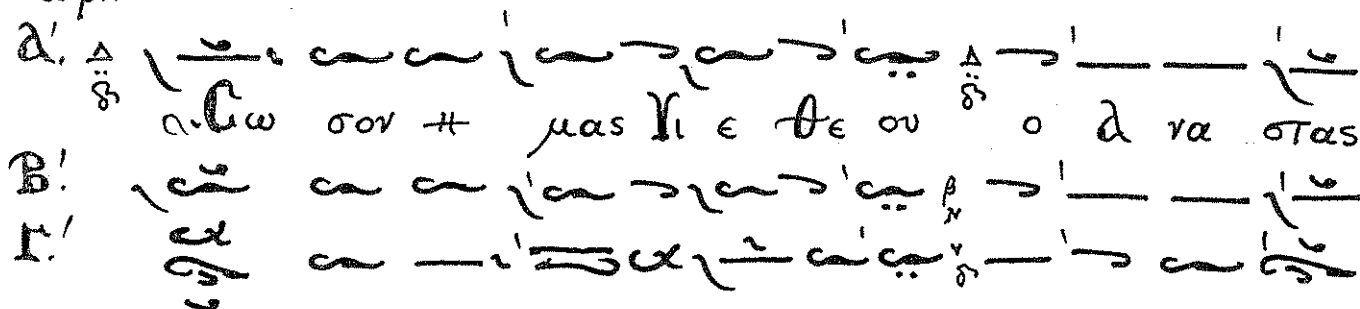 α'. Δ Δ
Σω σον η μας Υι ε θε ου ο α να στας
Β'. β
Γ'. ν